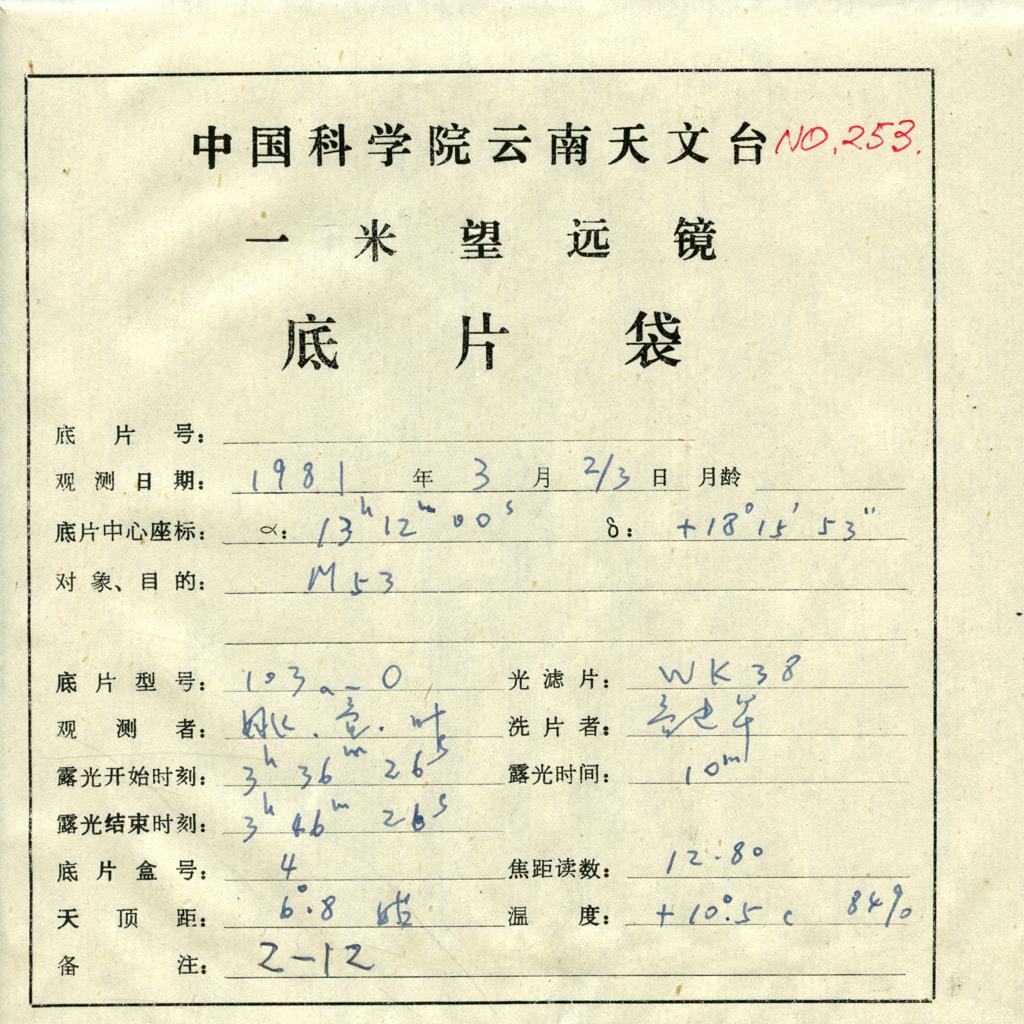 中国科学院云南天文台 NO.253.
一米望远镜
底片袋
底片号:
观测日期: 1981 年 3 月 2/3 日 月龄
底片中心座标: α: 13h 12m 00s δ: +18° 15′ 53″
对象、目的: M53
底片型号: 103a-O 光滤片: WK38
观测者: 洗片者:
露光开始时刻: 3h 36m 26s 露光时间: 10m
露光结束时刻: 3h 46m 26s
底片盒号: 4 焦距读数: 12.80
天顶距: 6°.8 温度: +10°.5 c 84%
备注: 2-12